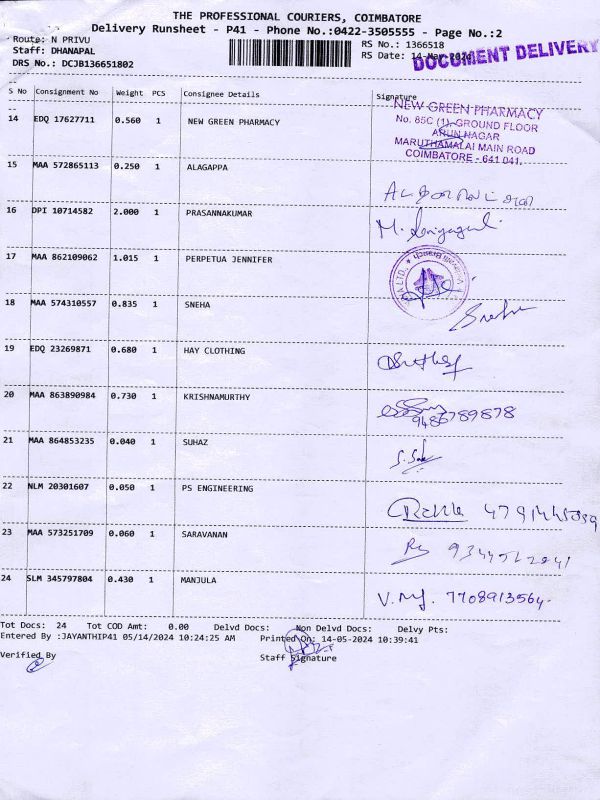 THE PROFESSIONAL COURIERS, COIMBATORE
Delivery Runsheet - P41 - Phone No.:0422-3505555 - Page No.:2
Route: N PRIVU
Staff: DHANAPAL
DRS No.: DCJB136651802
RS No.: 1366518
RS Date: 14-May-2024
DOCUMENT DELIVERY
S No Consignment No Weight PCS Consignee Details Signature
14 EDQ 17627711 0.560 1 NEW GREEN PHARMACY
NEW GREEN PHARMACY
No. 85C (1), GROUND FLOOR
ARUN NAGAR
MARUTHAMALAI MAIN ROAD
COIMBATORE - 641 041.
15 MAA 572865113 0.250 1 ALAGAPPA
16 DPI 10714582 2.000 1 PRASANNAKUMAR
17 MAA 862109062 1.015 1 PERPETUA JENNIFER
18 MAA 574310557 0.835 1 SNEHA
Sneha
19 EDQ 23269871 0.680 1 HAY CLOTHING
20 MAA 863890984 0.730 1 KRISHNAMURTHY
9486789878
21 MAA 864853235 0.040 1 SUHAZ
22 NLM 20301607 0.050 1 PS ENGINEERING
23 MAA 573251709 0.060 1 SARAVANAN
24 SLM 345797804 0.430 1 MANJULA
7708913564
Tot Docs: 24 Tot COD Amt: 0.00 Delvd Docs: Non Delvd Docs: Delvy Pts:
Entered By :JAYANTHIP41 05/14/2024 10:24:25 AM Printed On: 14-05-2024 10:39:41
Verified By Staff Signature